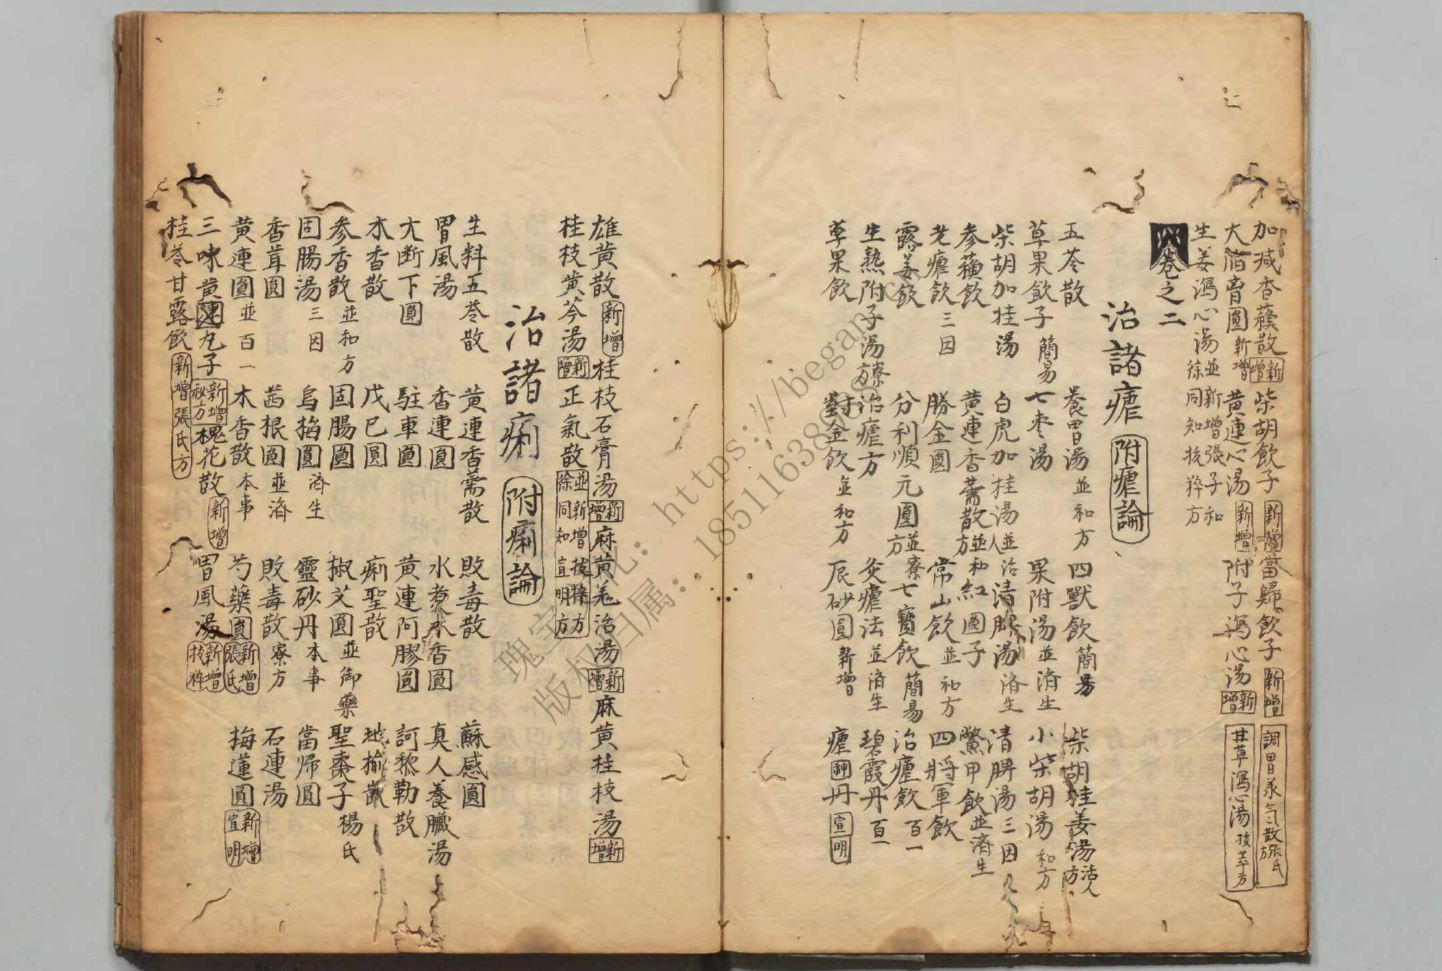 加減香薷散新增 柴胡飲子新增 當歸飲子新增 調胃承氣散張氏方
大消育圓新增 黃連心湯新增 附子瀉心湯新增 甘草瀉心湯拔萃方
生姜瀉心湯並新增張子和徐同知拔粹方
卷之二
治諸瘧 附瘧論
五苓散 養胃湯並和方 四獸飲簡易 柴胡桂姜湯活人方
草果飲子簡易 七枣湯 果附湯並済生 小柴胡湯和方
柴胡加桂湯 白虎加桂湯並活人 清脾湯済生 清脾湯三因
參蘓飲 黄連香薷散並和方 紅圓子 鱉甲飲並濟生
老瘧飲三因 勝金圓 常山飲並和方 四將軍飲
露姜飲 分利順元圓並寮方 七寶飲簡易 治瘧飲百一
生熟附子湯寮方 治瘧方 灸瘧法並済生 碧霞丹百一
草果飲 對金飲並和方 辰砂圓新增 瘧神丹宣明
雄黄散新增 桂枝石膏湯新增 麻黄羗活湯新增 麻黄桂枝湯新增
桂枝黄芩湯新增 正氣散並新增拔粹方徐同知宣明方
治諸痢 附痢論
生料五苓散 黄連香薷散 敗毒散 蘇感圓
胃風湯 香連圓 水煮木香圓 真人養臟湯
大断下圓 駐車圓 黄連阿膠圓 訶黎勒散
木香散 戊巳圓 痢聖散 地揄散
參香散並和方 固腸圓 椒艾圓並御藥 聖棗子楊氏
固腸湯三因 烏梅圓済生 靈砂丹本事 當帰圓
香茸圓 茜根圓並済 敗毒散寮方 石連湯
黄連圓並百一 木香散本事 芍藥圓新增張氏 梅蓮圓新增宣明
三味黄連丸子新增秘方 槐花散新增 胃風湯新增拔粹
桂苓甘露飲新增張氏方
瑰宝 : https://began
版权归属: 185116388